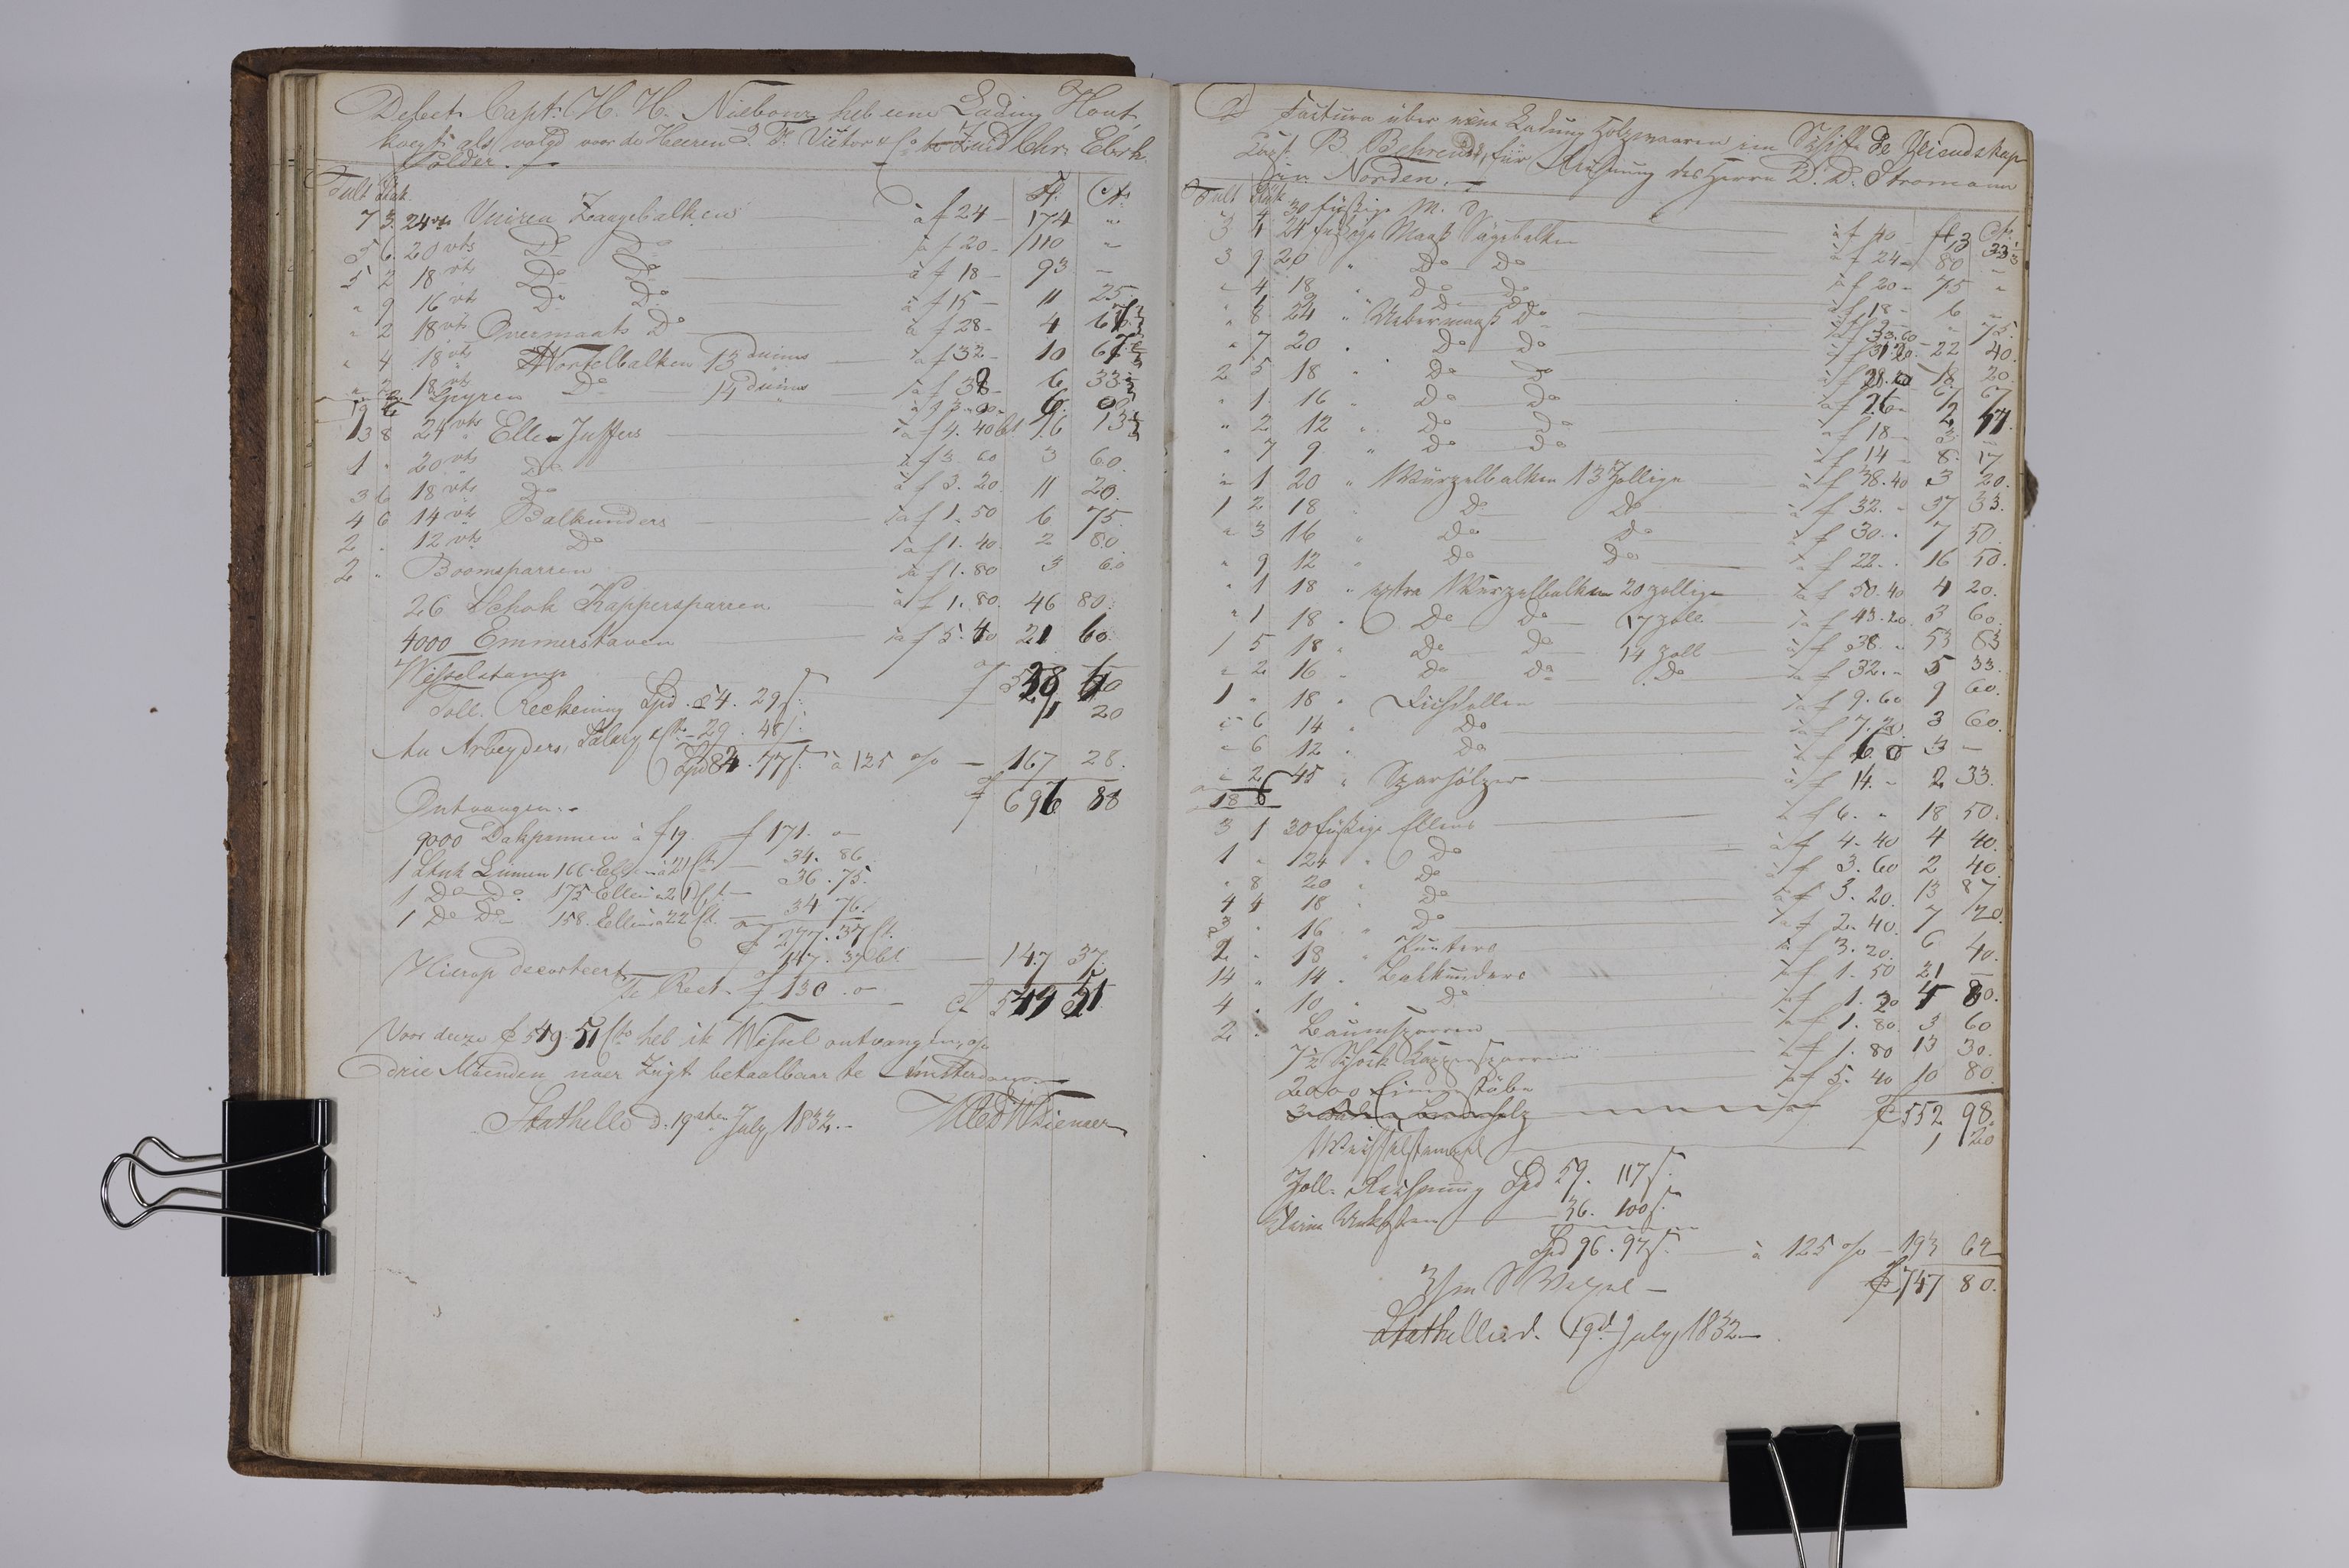 Debet Capt. H. H. Niebour heb eene Lading Hout
koegt als volgd voor de Heeren J. F. Victor & Co te Zuid Chr. Eberh.
Polder.
Tult Stuk f Ct
7 3 24 vts Vuiren Zaagebalken à f 24 – 174 "
5 6 20 vts Do Do à f 20 – 110 –
5 2 18 vts Do Do à f 18 – 93 –
" 9 16 vts Do Do à f 15 – 11 25
" 2 18 vts Overmaats Do à f 28 – 4 67
" 4 18 vts Wortelbalken 13 duims à f 32 – 10 67
" 2 18 vts Do 14 duims à f 38 – 6 33
Spyren
13 8 24 vts Ellen Juffers à f 4. 40
1 " 20 vts Do à f 3 60 3 60.
3 6 18 vts Do à f 3. 20. 11 20.
4 6 14 vts Balkunders à f 1. 50 6 75.
2 . 12 vts Do à f 1. 40. 2 80.
2 " Boomsparren à f 1. 80 3 60
26 Schok Kappersparren à f 1. 80. 46 80.
4000 Emmerstaven à f 5. 40 21 60.
Wisselstamp
Toll. Reckening Spd. 54. 29 ß. 1 20
An Arbeyders, Salary 29. 48 ß.
Spd 84. 77 ß. à 125 % – 167 28.
f 696 88
Ontvangen.
9000 Dakpannen à f 19. f 171. "
1 Stuk Linnen 166 Ellen à 21 Ct – 34. 86
1 Do Do 175 Ellen à 21 Ct – 36. 75.
1 Do Do 158. Ellen à 22 Ct – 34 76.
f 277. 37 Ct.
Hierop decorteert 147. 37 Ct – 147 37.
Te Rest. f 130. " f 549 51
Voor deeze f 549 51 Cts heb ik Wissel ontvangen, op
drie Maenden naer Zigt betaalbaar te Amsterdam
Stathelle d. 19sten July, 1832.
D Factura über eine Ladung Holzwaaren im Schiffe De Vriendskap
Capt. B. Behrends, für Rechnung des Herrn D. D. Stromann
in Norden.
Tult Stück f Ct
" 4 30 füßige M. D à f 40 13 33⅓
3 4 24 füßige Maaß Sägebalken à f 24 – 80 "
3 9 20 " Do Do à f 20 – 75 "
" 4 18 " Do Do à f 18 – 6 "
" 8 24 " Uebermaaß Do à f 33. 60 – 22 40.
" 7 20 " Do Do à f 31. 20. 18 20
2 5 18 " Do Do
" 1 16 " Do Do à f 26 –
" 2 12 " Do Do à f 18 – 3 –
" 7 9 " Do Do à f 14 – 8. 17
" 1 20 " Wurzelbalken 13 zollige à f 38. 40 3 20.
1 2 18 " Do Do à f 32. – 37 33.
" 3 16 " Do Do à f 30. . 7 50.
" 9 12 " Do Do à f 22. . 16 50.
" 1 18 " extra Wurzelbalken 20 zollige à f 50. 40 4 20.
" 1 18 " Do Do 17 zoll à f 43. 20. 3 60.
1 5 18 " Do Do 14 zoll à f 38. . 53 83
" 2 16 " Do Do Do à f 32. – 5 33.
1 " 18 " à f 9. 60 9 60.
" 6 14 " Do à f 7. 20. 3 60.
" 6 12 " Do à f 6. 0 3 –
" 2 45 " Sparhölzer à f 14. – 2 33.
18 8
3 1 30 füßige Ellens à f 6. " 18 50.
1 " 24 " Do à f 4. 40 4 40.
" 8 20 " Do à f 3. 60 2 40.
4 4 18 " Do à f 3. 20. 13 87
3 " 16 " Do à f 2. 40. 7 20.
2 . 18 " à f 3. 20. 6 40.
14 " 14 " Balkunders à f 1. 50 21 –
4 . 10 " Do à f 1. 20 4 80.
2 " Baumsparren à f 1. 80. 3 60
7½ Schock Kappersparren à f 1. 80 13 30.
2000 Eimerstäbe à f 5. 40 10 80.
f 552 98.
Wechselstempel 1 20
Zoll. Rechnung Spd 59. 117 ß.
Kleine Unkosten 36. 100 ß.
Spd 96. 97 ß. à 125 % – 193 62
f 747 80.
Stathelle d. 19d July, 1832